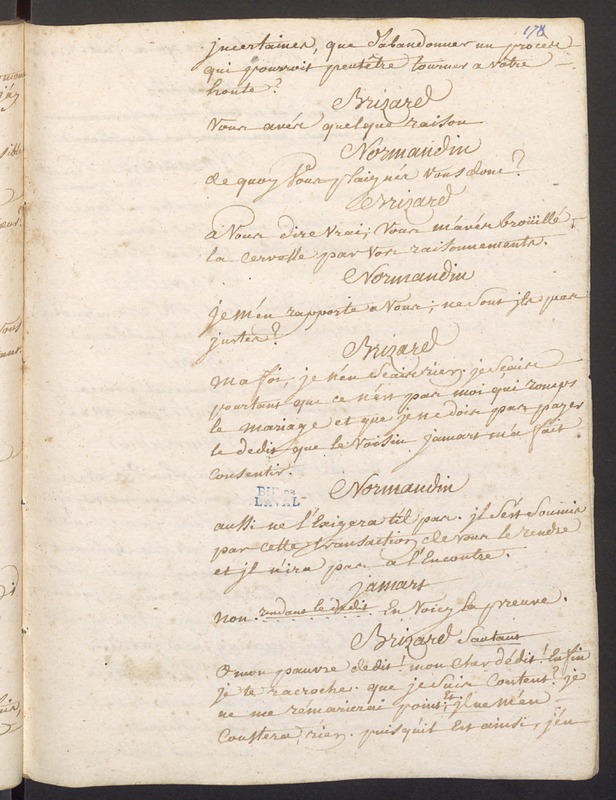 178
jncertaines, que d'abandonner un procese
qui pourroit peutêtre tourner a vôtre
honte?
Brizard
Vous avés quelque raison
Normandin
de quoy Vous plaignez Vous donc?
Brizard
a Vous dire Vrai; Vous m'avés broüillé
la cervelle par Vos raisonnements.
Normandin
je m'en rapporte a Vous; ne sont jls pas
justes?
Brizard
ma foi, je n'en scais rien; je scais
pourtant que ce n'est pas moi qui romps
le mariage et que je ne dois pas payer
le dedit que le Voisin jamart m'a fait
consentir!
BIB. DE
LAVAL
Normandin
aussi ne l'Exigera t'il pas. jl s'est soumis
par cette transaction de vous le rendre
et jl n'ira pas a l'Encontre.
jamart
non rendant le dedit En Voicy la preuve.
Brizard sautant
O mon pauvre dedit! mon cher dédit! Enfin
je te racroche. que je suis content? je
ne me rémarierai point, et jl ne m'en
coustera rien. puisqu'il Est ainsi, j'en